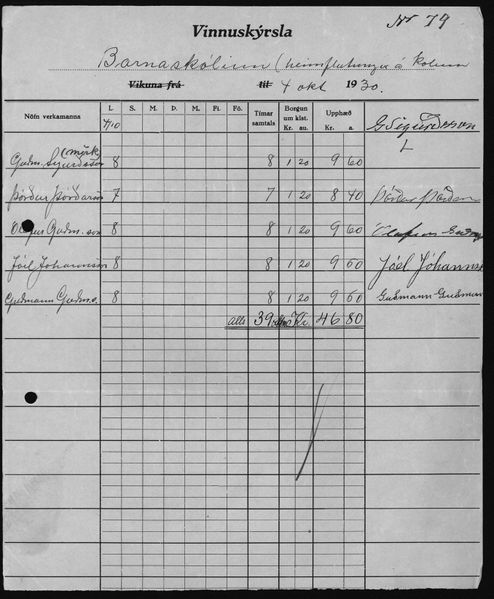 Nr 79
Vinnuskýrsla
Barnaskólinn (heimflutningur á kolum
Vikuna frá til 4 okt 1930.
Nöfn verkamanna L. S. M. Þ. M. F. Fi. Fö. Tímar samtals Borgun um klst. Kr. au. Upphæð Kr. a.
4/10 G Sigurðsson
Guðm. Sigurdsson (mörk) 8 8 1 20 9 60
Þórður Þórðarson 7 7 1 20 8 40 Þórður Þórðar
Guðm.son 8 8 1 20 9 60
Jóel Jóhannsson 8 8 1 20 9 60 Jóel Jóhanns
Guðmann Guðm.s. 8 8 1 20 9 60 Guðmann Guðmun
Alls 39 Kr. 46 80